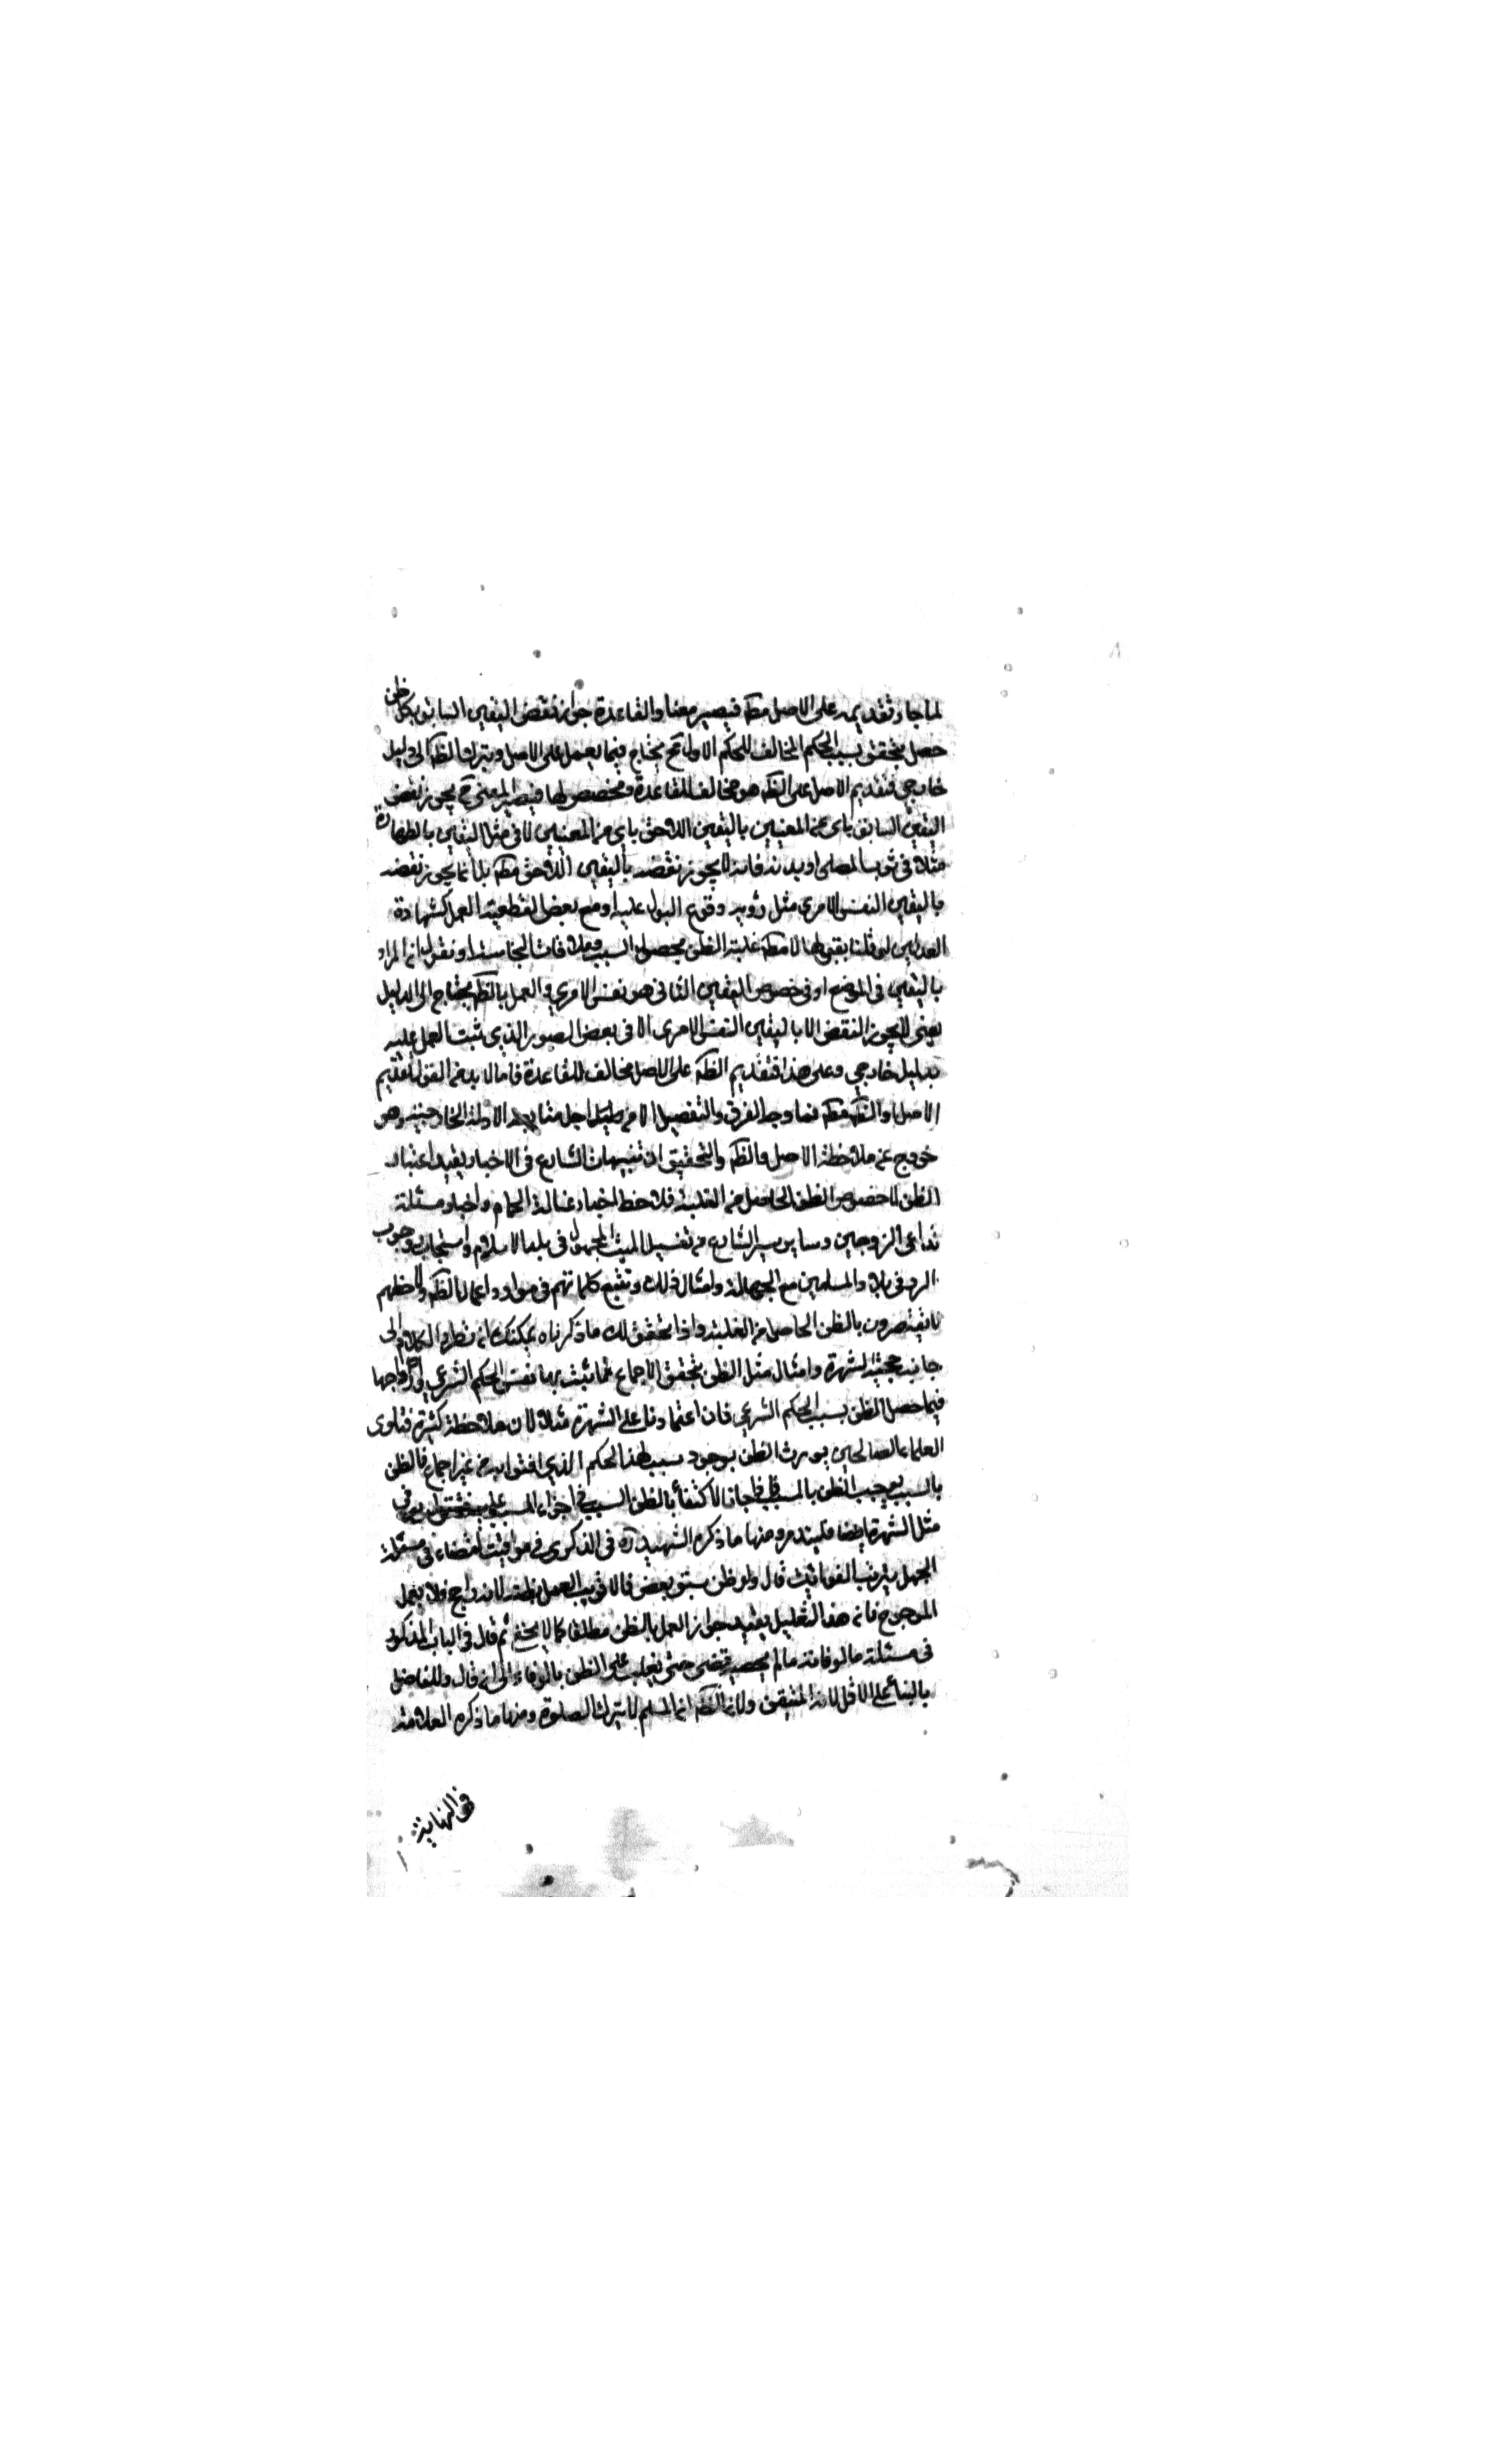 لما جاز تقديمه على الاصل مطه فيصير معنا والقاعدة جواز نقض اليقين السابق بكل ظن
حصل بتحقق سبب الحكم المخالف للحكم الاول فح يحتاج فيما يعمل على الاصل ويترك الظه الى دليل
خارجي فتقديم الاصل على الظه هو مخالف للقاعدة ومخصص لها فيصير المعنى ح يجوز نقض
اليقين السابق باى من المعنيين باليقين اللاحق باى من المعنيين لا فى مثل اليقين بالطهارة
مثلا فى ثوب المصلى او بدنه فانه لا يجوز نقضه باليقين اللاحق مطه بل انما يجوز نقضه
باليقين النفس الامرى مثل رؤية وقوع البول عليه او مع بعض لقطعية العمل كشهادة
العدلين لو قلنا بقبولها لا مطه غلبة الظن بحصول السبب وملاقات النجاسة او نقول ان المراد
باليقين فى الموضع او فى خصوص اليقين الثانى هو نفس الامرى والعمل بالظه يحتاج الى الدليل
يعنى لا يجوز النقض الا باليقين النفس الامرى الا فى بعض الصور الذى ثبت العمل عليه
بدليل خارجي وعلى هذا فتقديم الظه على الاصل مخالف للقاعدة فاما لا بد من القول بتقديم
الاصل او الظه مطه فما وجه الفرق والتفصيل الا من اجل متابعة الادلة الخارجية وهو
خروج عن ملاحظة الاصل والظه والتحقيق ان تنبيهات الشارع فى الاخبار يفيد اعتبار
الظن لا خصوص الظن الحاصل من الغلبة فلاحظ اخبار غسالة الحمام واخبار مسئلة
تداعى الزوجين وساير سير الشارع من تغسيل الميت المجهول فى بلد الاسلام واستحباب ووجوب
الرد فى بلاد المسلمين مع الجهالة وامثال ذلك وتتبع كلماتهم فى موارد اعمال الظه ولاحظهم
لا يقتصرون بالظن الحاصل من الغلبة واذا تحقق لك ما ذكرناه يمكنك ان تطرد الكلام الى
جانب حجية الشهرة وامثال مثل الظن بتحقق الاجماع مما يثبت بها نفس الحكم الشرعي وادراجها
فيما حصل الظن بسبب الحكم الشرعي فان اعتمادنا على الشهرة مثلا لان ملاحظة كثرة فتاوى
العلماء الصالحين يورث الظن بوجود سبب لهذا الحكم الذي افتوا به من غير اجماع فالظن
بالسبب يوجب الظن بالمسبب فاذا جاز الاكتفاء بالظن السببي فى اجراء المسبب عليه
مثل الشهرة ايضا فليتدبر ومنها ما ذكره الشهيد ره فى الذكرى فى مواقيت القضاء فى مسئلة
الجهل بترتيب الفوائت قال ولو ظن سبق بعض فالاقرب العمل بظنه لانه راجح فلا يعمل
المرجوح فان هذا التعليل يفيد جواز العمل بالظن مطلقا كما لا يخفى ثم قال فى الباب المذكور
فى مسئلة ما لو فاته ما لم يحصه قضى حتى يغلب على الظن بالوفاء الى ان قال وللفاضل
بالبناء على الاقل لانه المتيقن ولان الظه ان المسلم لا يترك الصلوة ومنها ما ذكره العلامة
فى النهاية